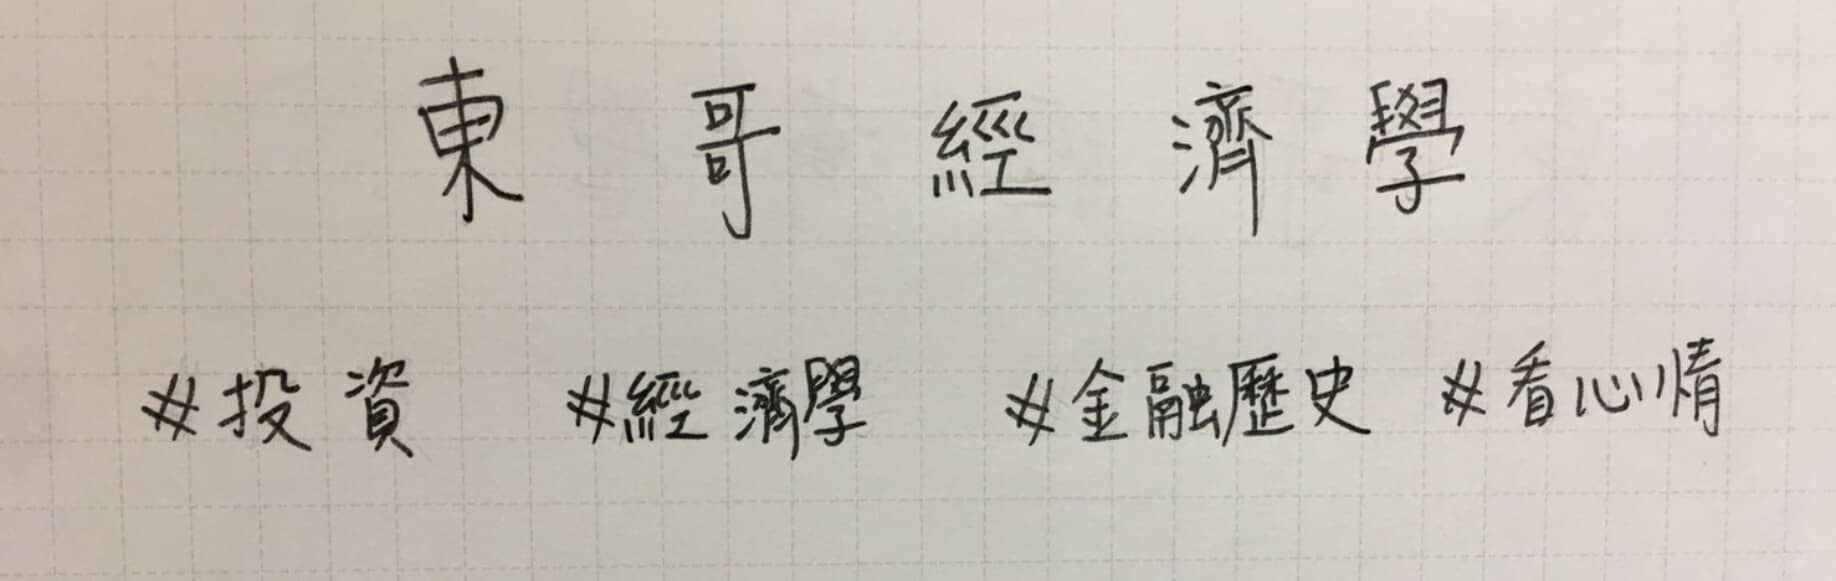 東哥經濟學
#投資 #經濟學 #金融歷史 #看心情